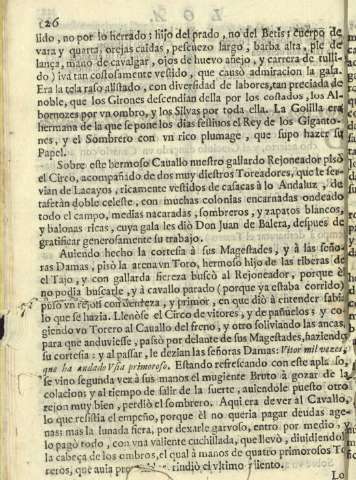 126
lido, no por lo herrado; hijo del prado, no del Betis; cuerpo de
vara y quarta, orejas caidas, pescuezo largo, barba alta, pie de
lança, mano de cavalgar, ojos de huevo añejo, y carrera de tulli-
do) iva tan costosamente vestido, que causò admiracion la gala.
Era la tela raso alistado, con diversidad de labores, tan preciada de
noble, que los Girones descendian della por los costados, los Al-
bornozes por vn ombro, y los Silvas por toda ella. La Golilla era
hermana de la que se pone los dias festivos el Rey de los Giganto-
nes, y el Sombrero con va rico plumage, que supo hazer su
Papel.
Sobre este hermoso Cavallo nuestro gallardo Rejoneador pisò
el Circo, acompañado de dos muy diestros Toreadores, que le ser-
vian de Lacayos, ricamente vestidos de casacas à lo Andaluz, de
tafetàn doble celeste, con muchas colonias encarnadas ondeado
todo el campo, medias nacaradas, sombreros, y zapatos blancos,
y balonas ricas, cuya gala les diò Don Juan de Balera, despues de
gratificar generosamente su trabajo.
Auiendo hecho la cortesia à sus Magestades, y à las seño-
ras Damas, pisò la arena vn Toro, hermoso hijo de las riberas de
el Tajo, y con gallarda fiereza buscò al Rejoneador, porque è
no podia buscarle, y à cavallo parado (porque ya estaba corrido)
puso vn rejon con destreza, y primor, en que diò à entender sabia
lo que se hazia. Llenòse el Circo de vitores, y de pañuelos: y co
giendo vn Torero al Cauallo del freno, y otro soliviando las ancas,
para que anduviesse, passò por delante de sus Magestades, haziendo
su cortesia: y al passar, le dezian las señoras Damas: Vitor mil vezes,
que ha andado Vsia primoroso. Estando refrescando con este aplauso,
se vino segunda vez à sus manos el mugiente Bruto à gozar de la
colacion; y al tiempo de salir de la suerte, auiendole puesto otro
rejon muy bien, perdiò el sombrero. Aqui era de ver al Cavallo,
lo que resistia el empeño, porque èl no queria pagar deudas age-
nas: mas la lunada fiera, por dexarle garvoso, entrò por medio, y
lo pagò todo, con vna valiente cuchillada, que llevò, diuidiendo
la cabeça de los ombros, el qual à manos de quatro primorosos To
reros, que auia rindiò el vltimo aliento.
Lo